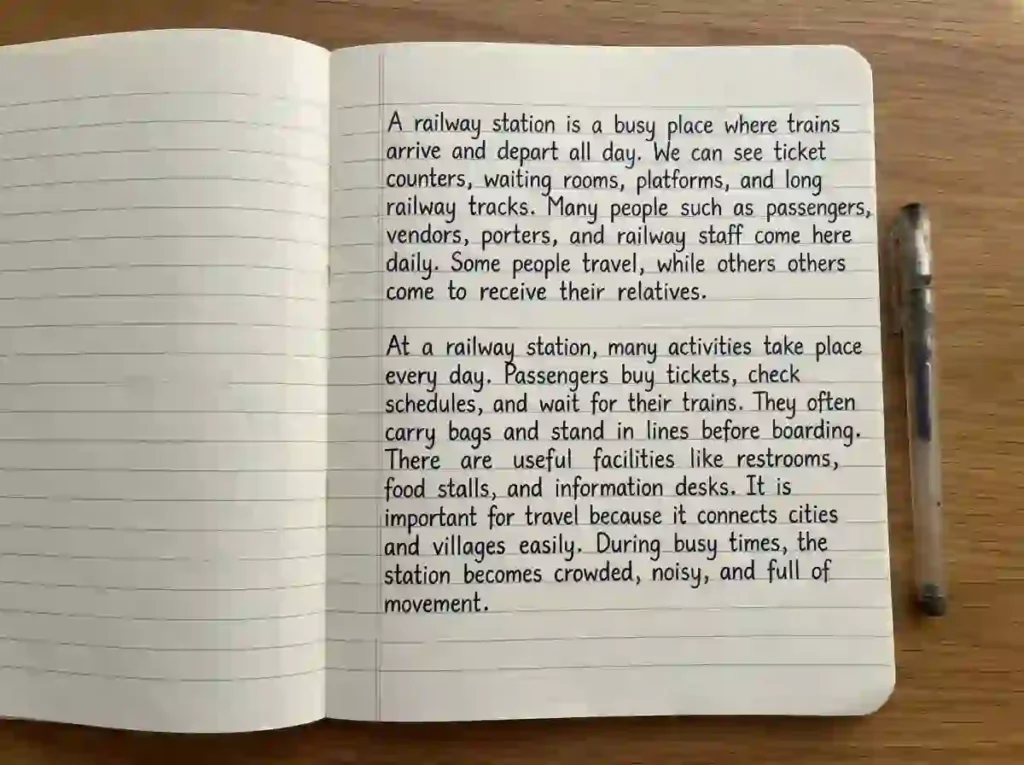 A railway station is a busy place where trains
arrive and depart all day. We can see ticket
counters, waiting rooms, platforms, and long
railway tracks. Many people such as passengers,
vendors, porters, and railway staff come here
daily. Some people travel, while others others
come to receive their relatives.

At a railway station, many activities take place
every day. Passengers buy tickets, check
schedules, and wait for their trains. They often
carry bags and stand in lines before boarding.
There are useful facilities like restrooms,
food stalls, and information desks. It is
important for travel because it connects cities
and villages easily. During busy times, the
station becomes crowded, noisy, and full of
movement.